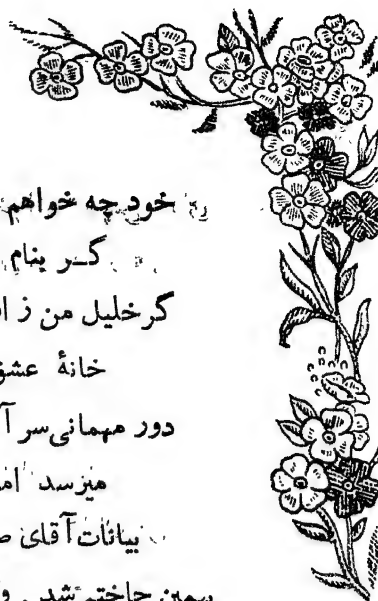 خود چه خواهم
گر بنام
گر خلیل من ز
خانهٔ عشق
دور مهمانی سر آ
میرسد
بیانات آقای
بهمین جا ختم شد